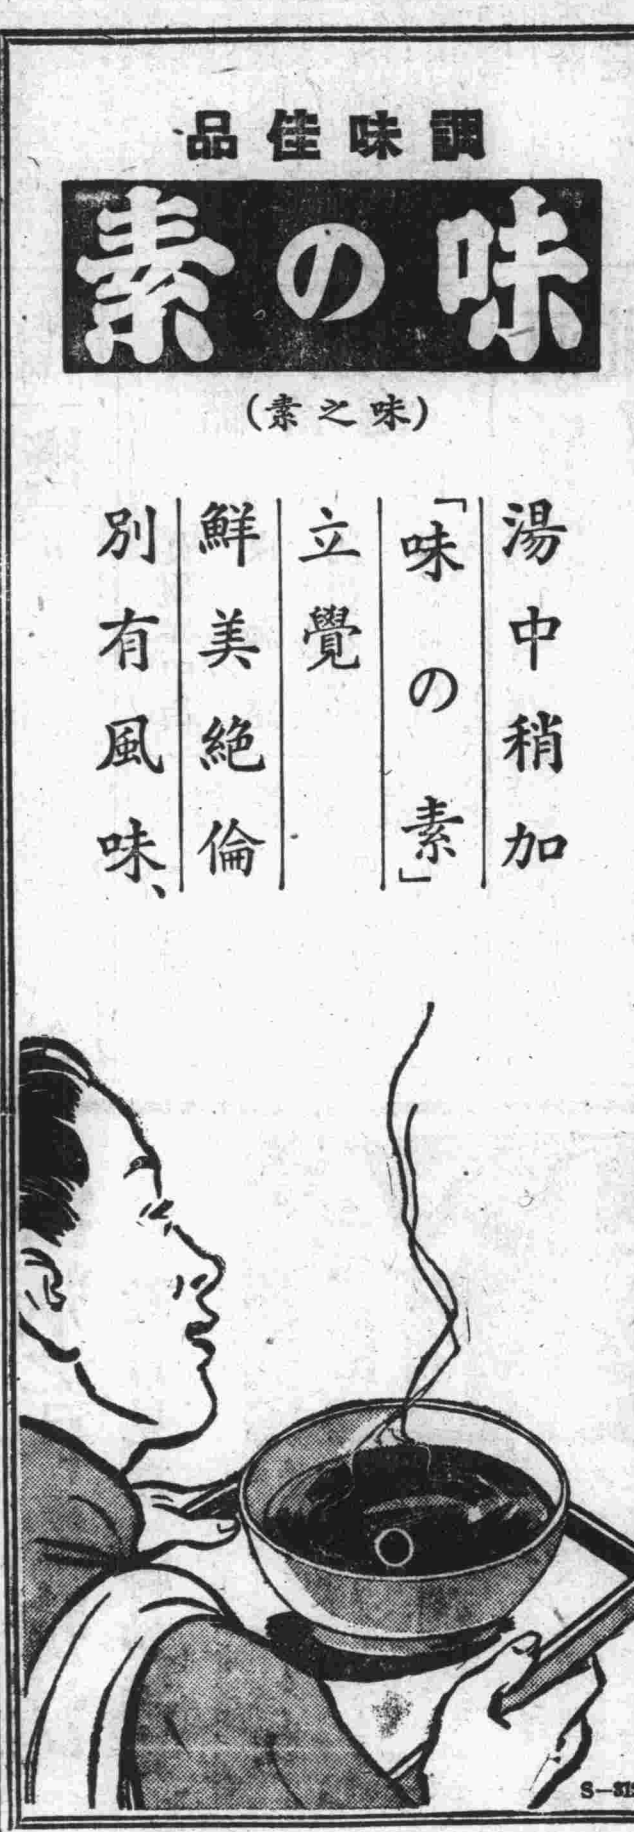 調味佳品
味の素
(味之素)
湯中稍加
「味の素」
立覺
鮮美絶倫
別有風味、